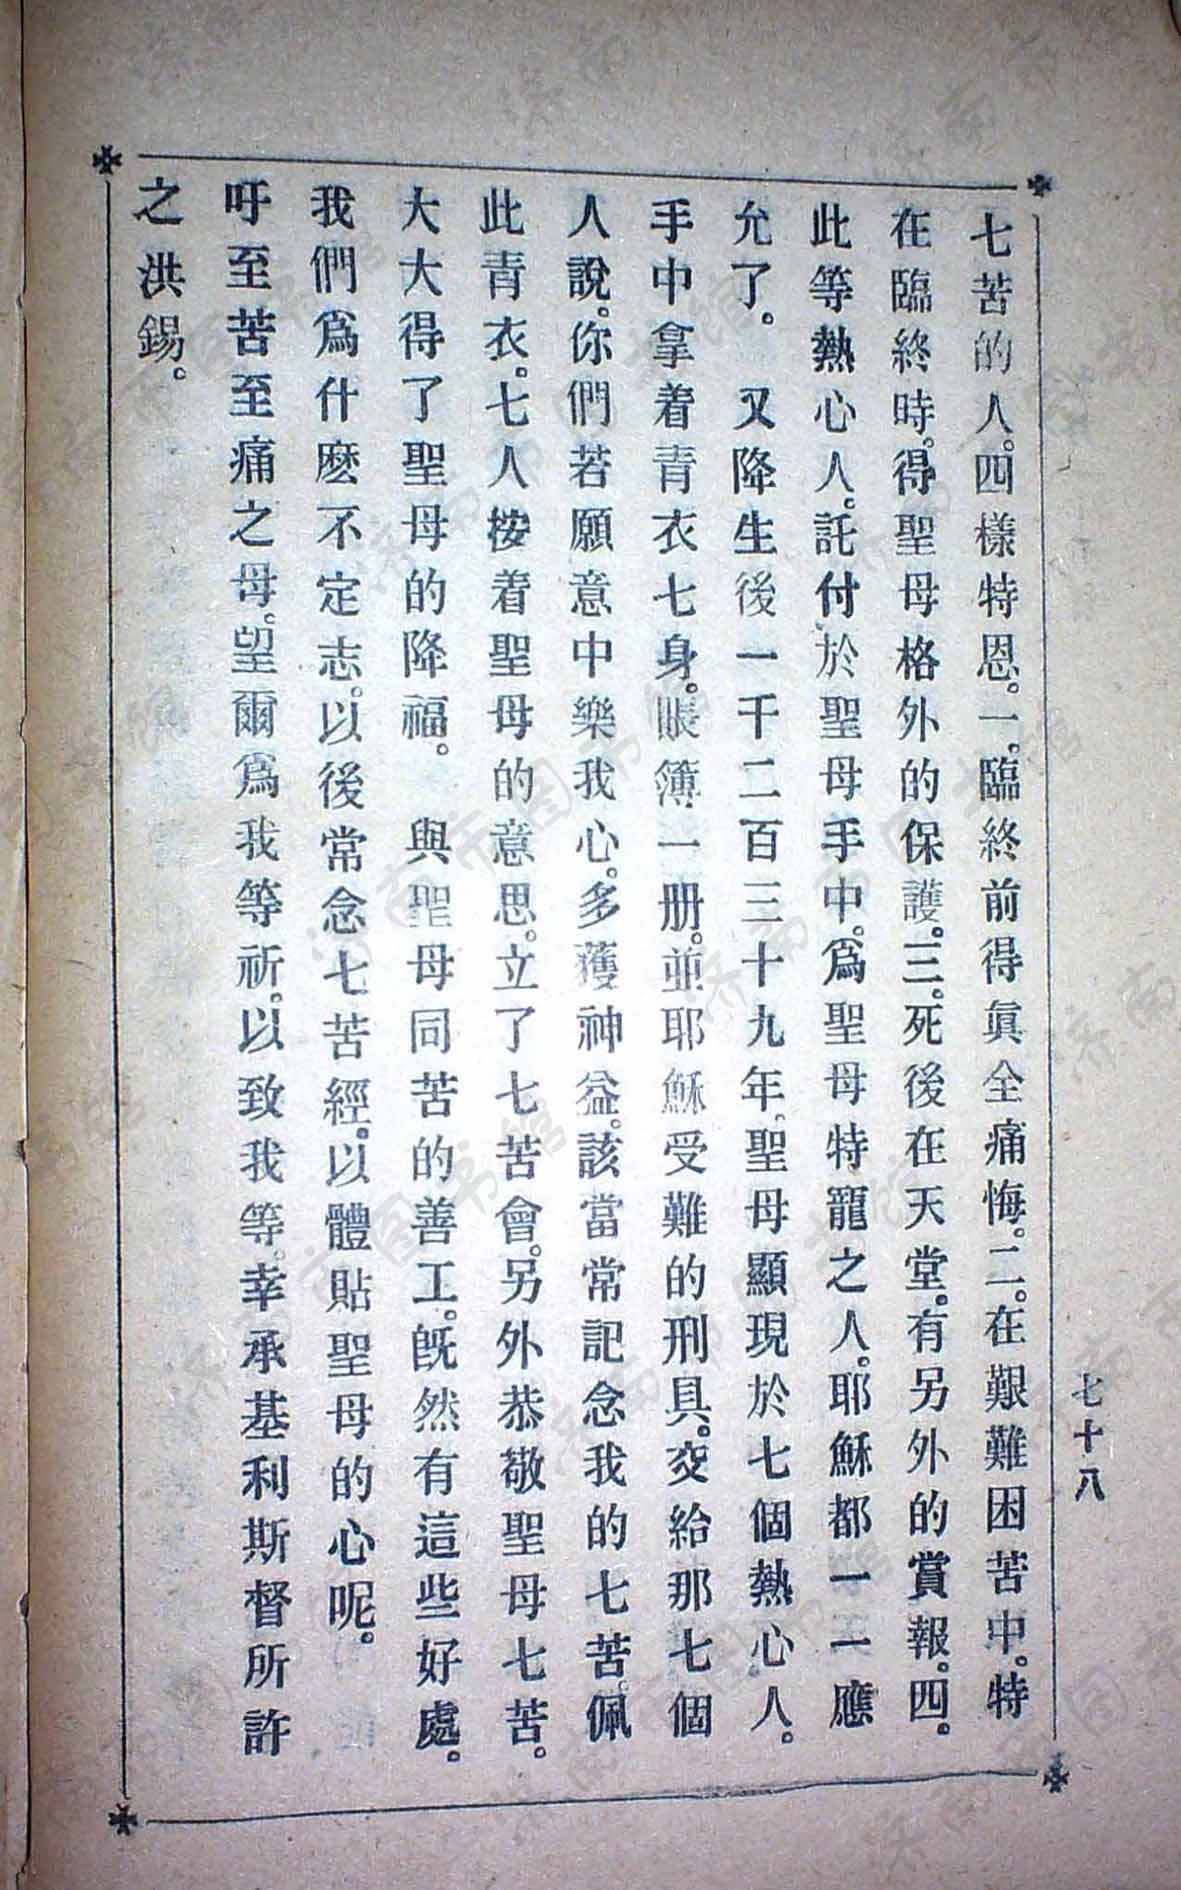 七苦的人。四樣特恩。一。臨終前得眞全痛悔。二。在艱難困苦中。特
在臨終時。得聖母格外的保護。三。死後在天堂。有另外的賞報。四。
此等熱心人。託付於聖母手中。爲聖母特寵之人。耶穌都一一應
允了。　又降生後一千二百三十九年。聖母顯現於七個熱心人。
手中拿着青衣七身。賬簿一册。並耶穌受難的刑具。交給那七個
人說。你們若願意中樂我心。多獲神益。該當常記念我的七苦。佩
此青衣。七人按着聖母的意思。立了七苦會。另外恭敬聖母七苦。
大大得了聖母的降福。　與聖母同苦的善工。旣然有這些好處。
我們爲什麽不定志。以後常念七苦經。以體貼聖母的心呢。
吁至苦至痛之母。望爾爲我等祈。以致我等。幸承基利斯督所許
之洪錫。
七十八
济南市图书馆